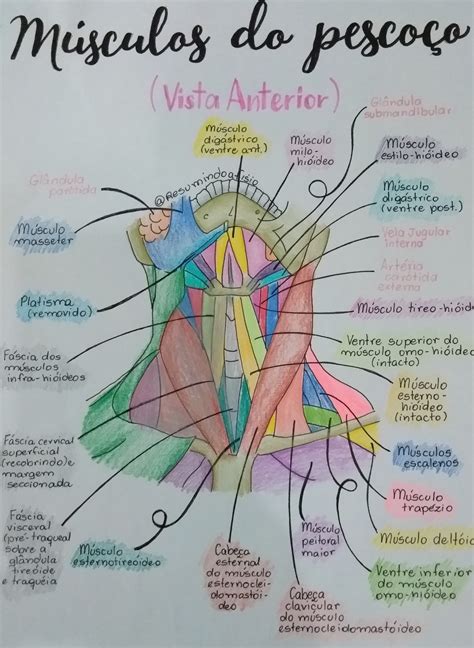 Músculos do pescoço
(Vista Anterior)
Músculo
digástrico
(ventre ant.)
Músculo
milo-
hióideo
Glândula
submandibular
Músculo
estilo-hióideo
@Resumindoafisio
Glândula
parótida
Músculo
digástrico
(ventre post.)
Músculo
masseter
Veia Jugular
Interna
Artéria
carótida
externa
Platisma
(removido)
Músculo tireo-hióideo
Fáscia dos
músculos
infra-hióideos
Ventre superior do
músculo omo-hióideo
(intacto)
Músculo
esterno-
hióideo
(intacto)
Fáscia cervical
superficial
(recobrindo) e
margem
seccionada
Músculos
escalenos
Músculo
trapézio
Fáscia
visceral
(pré-traqueal
sobre a
glândula
tireóide
e traquéia
Músculo
esternotireóideo
Cabeça
esternal
do músculo
esternoclei-
domastói-
deo
Músculo
peitoral
maior
Músculo deltói
Ventre inferior
do músculo
omo-hióideo
Cabeça
clavicular
do músculo
esternocleidomastóideo